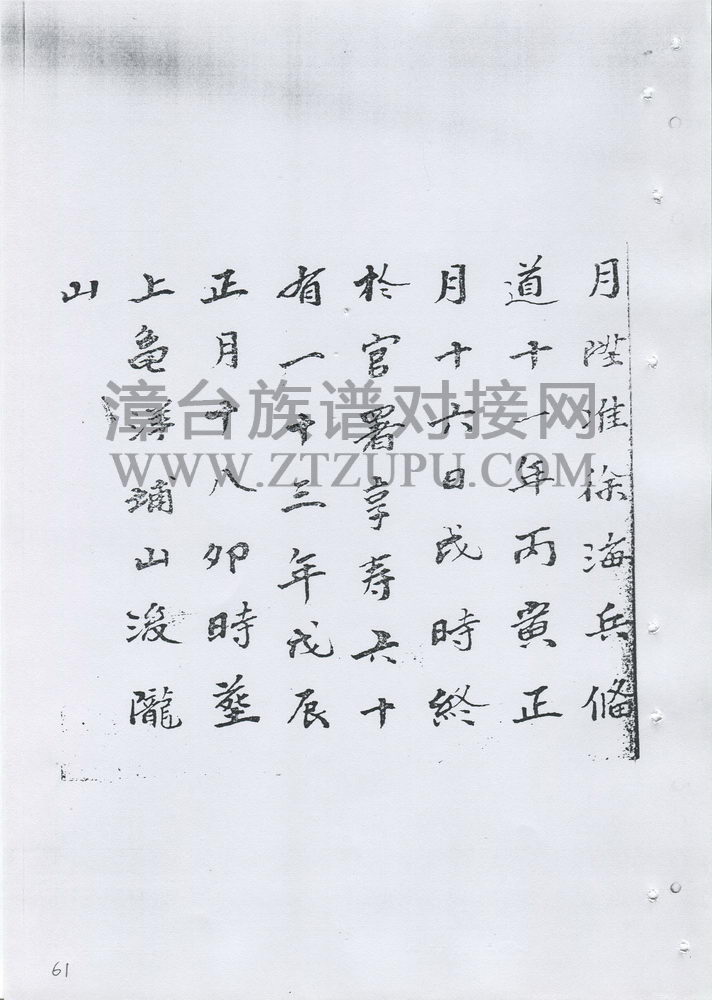 月陞淮徐海兵偹
道十一年丙寅正
月十六日戌時終
於官署享寿六十
有一十三年戊辰
正月十八卯時塟
上龟洋埔山後隴
山
漳台族谱对接网
WWW.ZTZUPU.COM
61